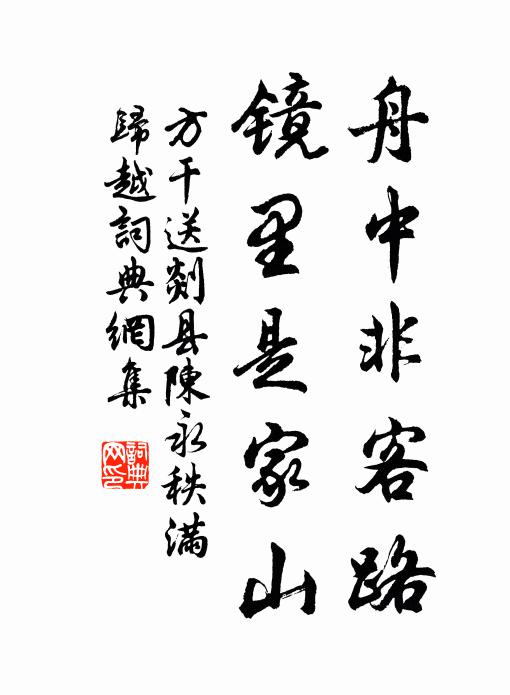 舟中非客路
镜里是家山
方干送剡县陳永秩满
歸越詞典網集
詞典网印